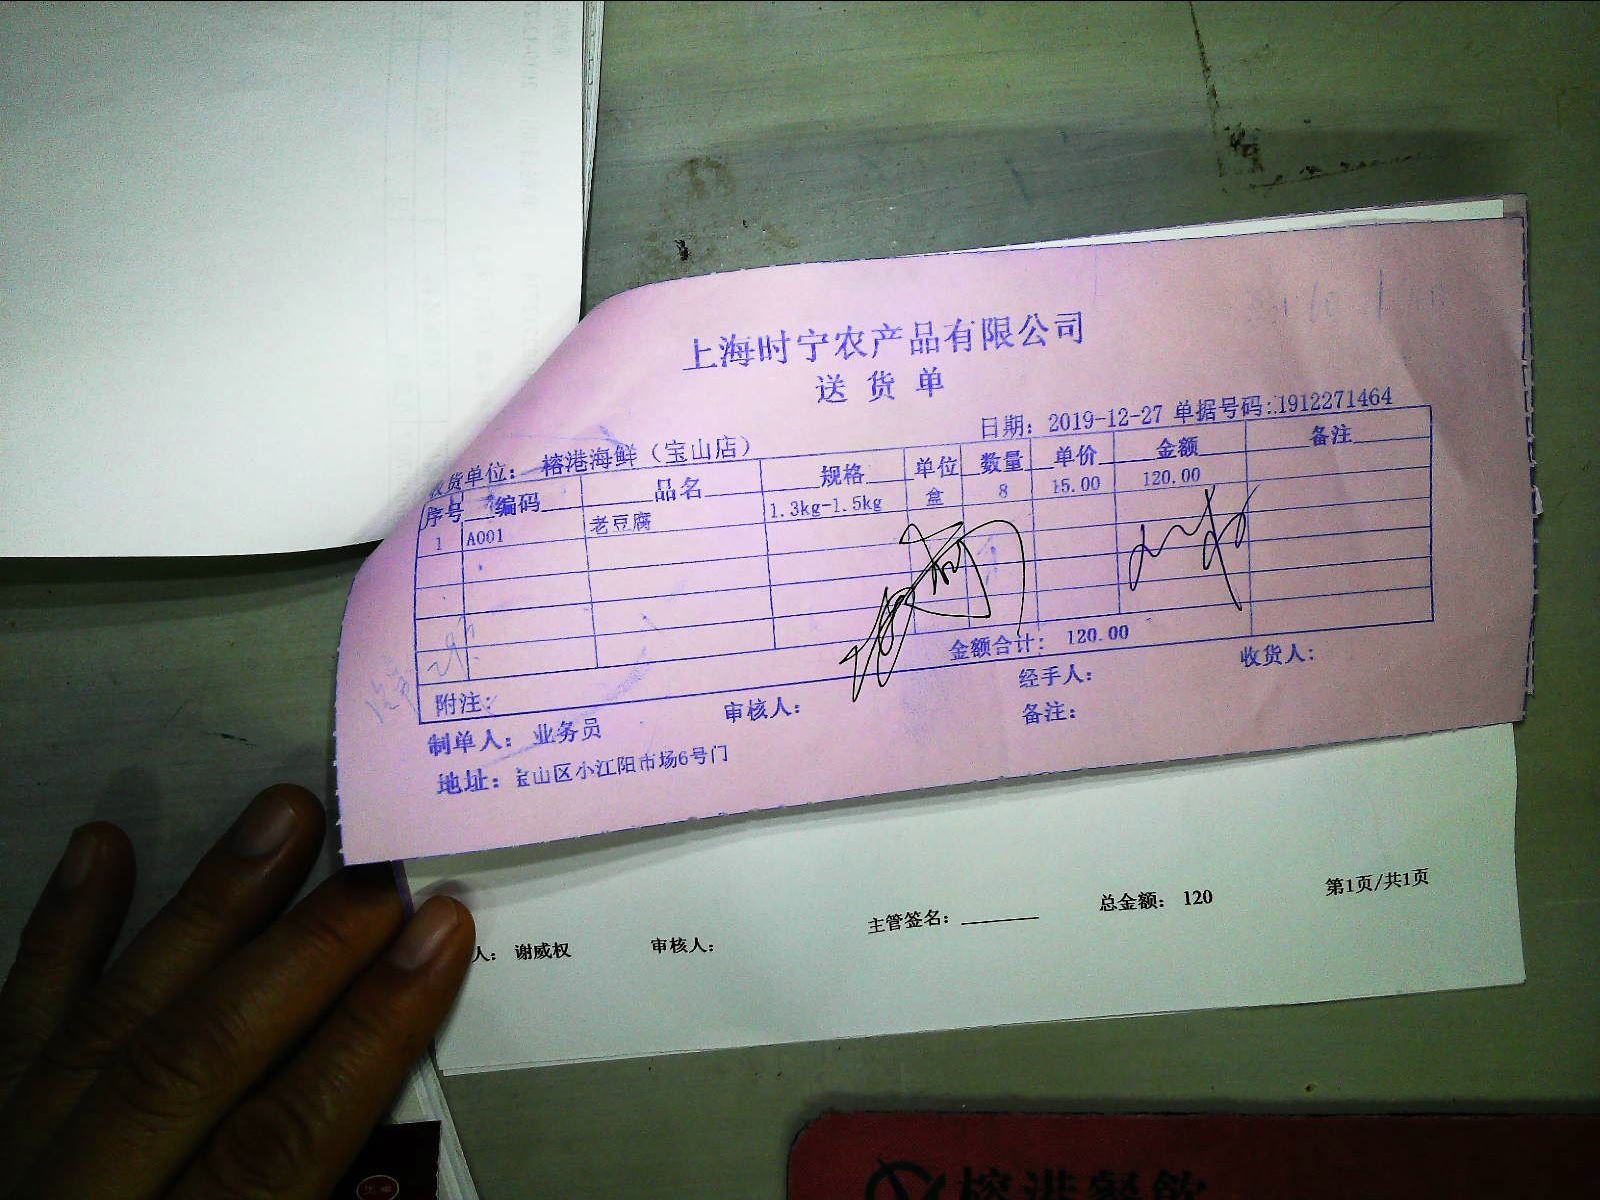 上海时宁农产品有限公司
送货单
日期： 2019-12-27 单据号码：1912271464
收货单位： 榕港海鲜（宝山店）
序号 编码 品名 规格 单位 数量 单价 金额 备注
1 A001 老豆腐 1.3kg-1.5kg 盒 8 15.00 120.00
金额合计： 120.00
附注：
制单人： 业务员 审核人： 经手人： 收货人：
备注：
地址：宝山区小江阳市场6号门
人： 谢威权 审核人： 主管签名：________ 总金额： 120 第1页/共1页
榕港餐饮